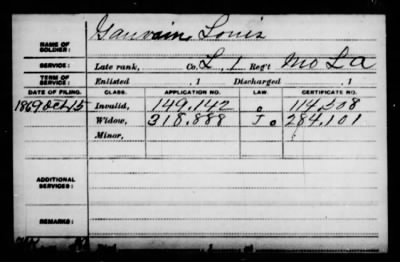 Gauvain Louis
NAME OF SOLDIER:
SERVICE: Late rank, Co. L, 1 Reg't Mo L a
TERM OF SERVICE: Enlisted , 1 Discharged , 1
DATE OF FILING. CLASS. APPLICATION NO. LAW. CERTIFICATE NO.
1869 Oct 15 Invalid, 149.142 114.508
Widow, 318.888 J 284.101
Minor,
ADDITIONAL SERVICES:
REMARKS: